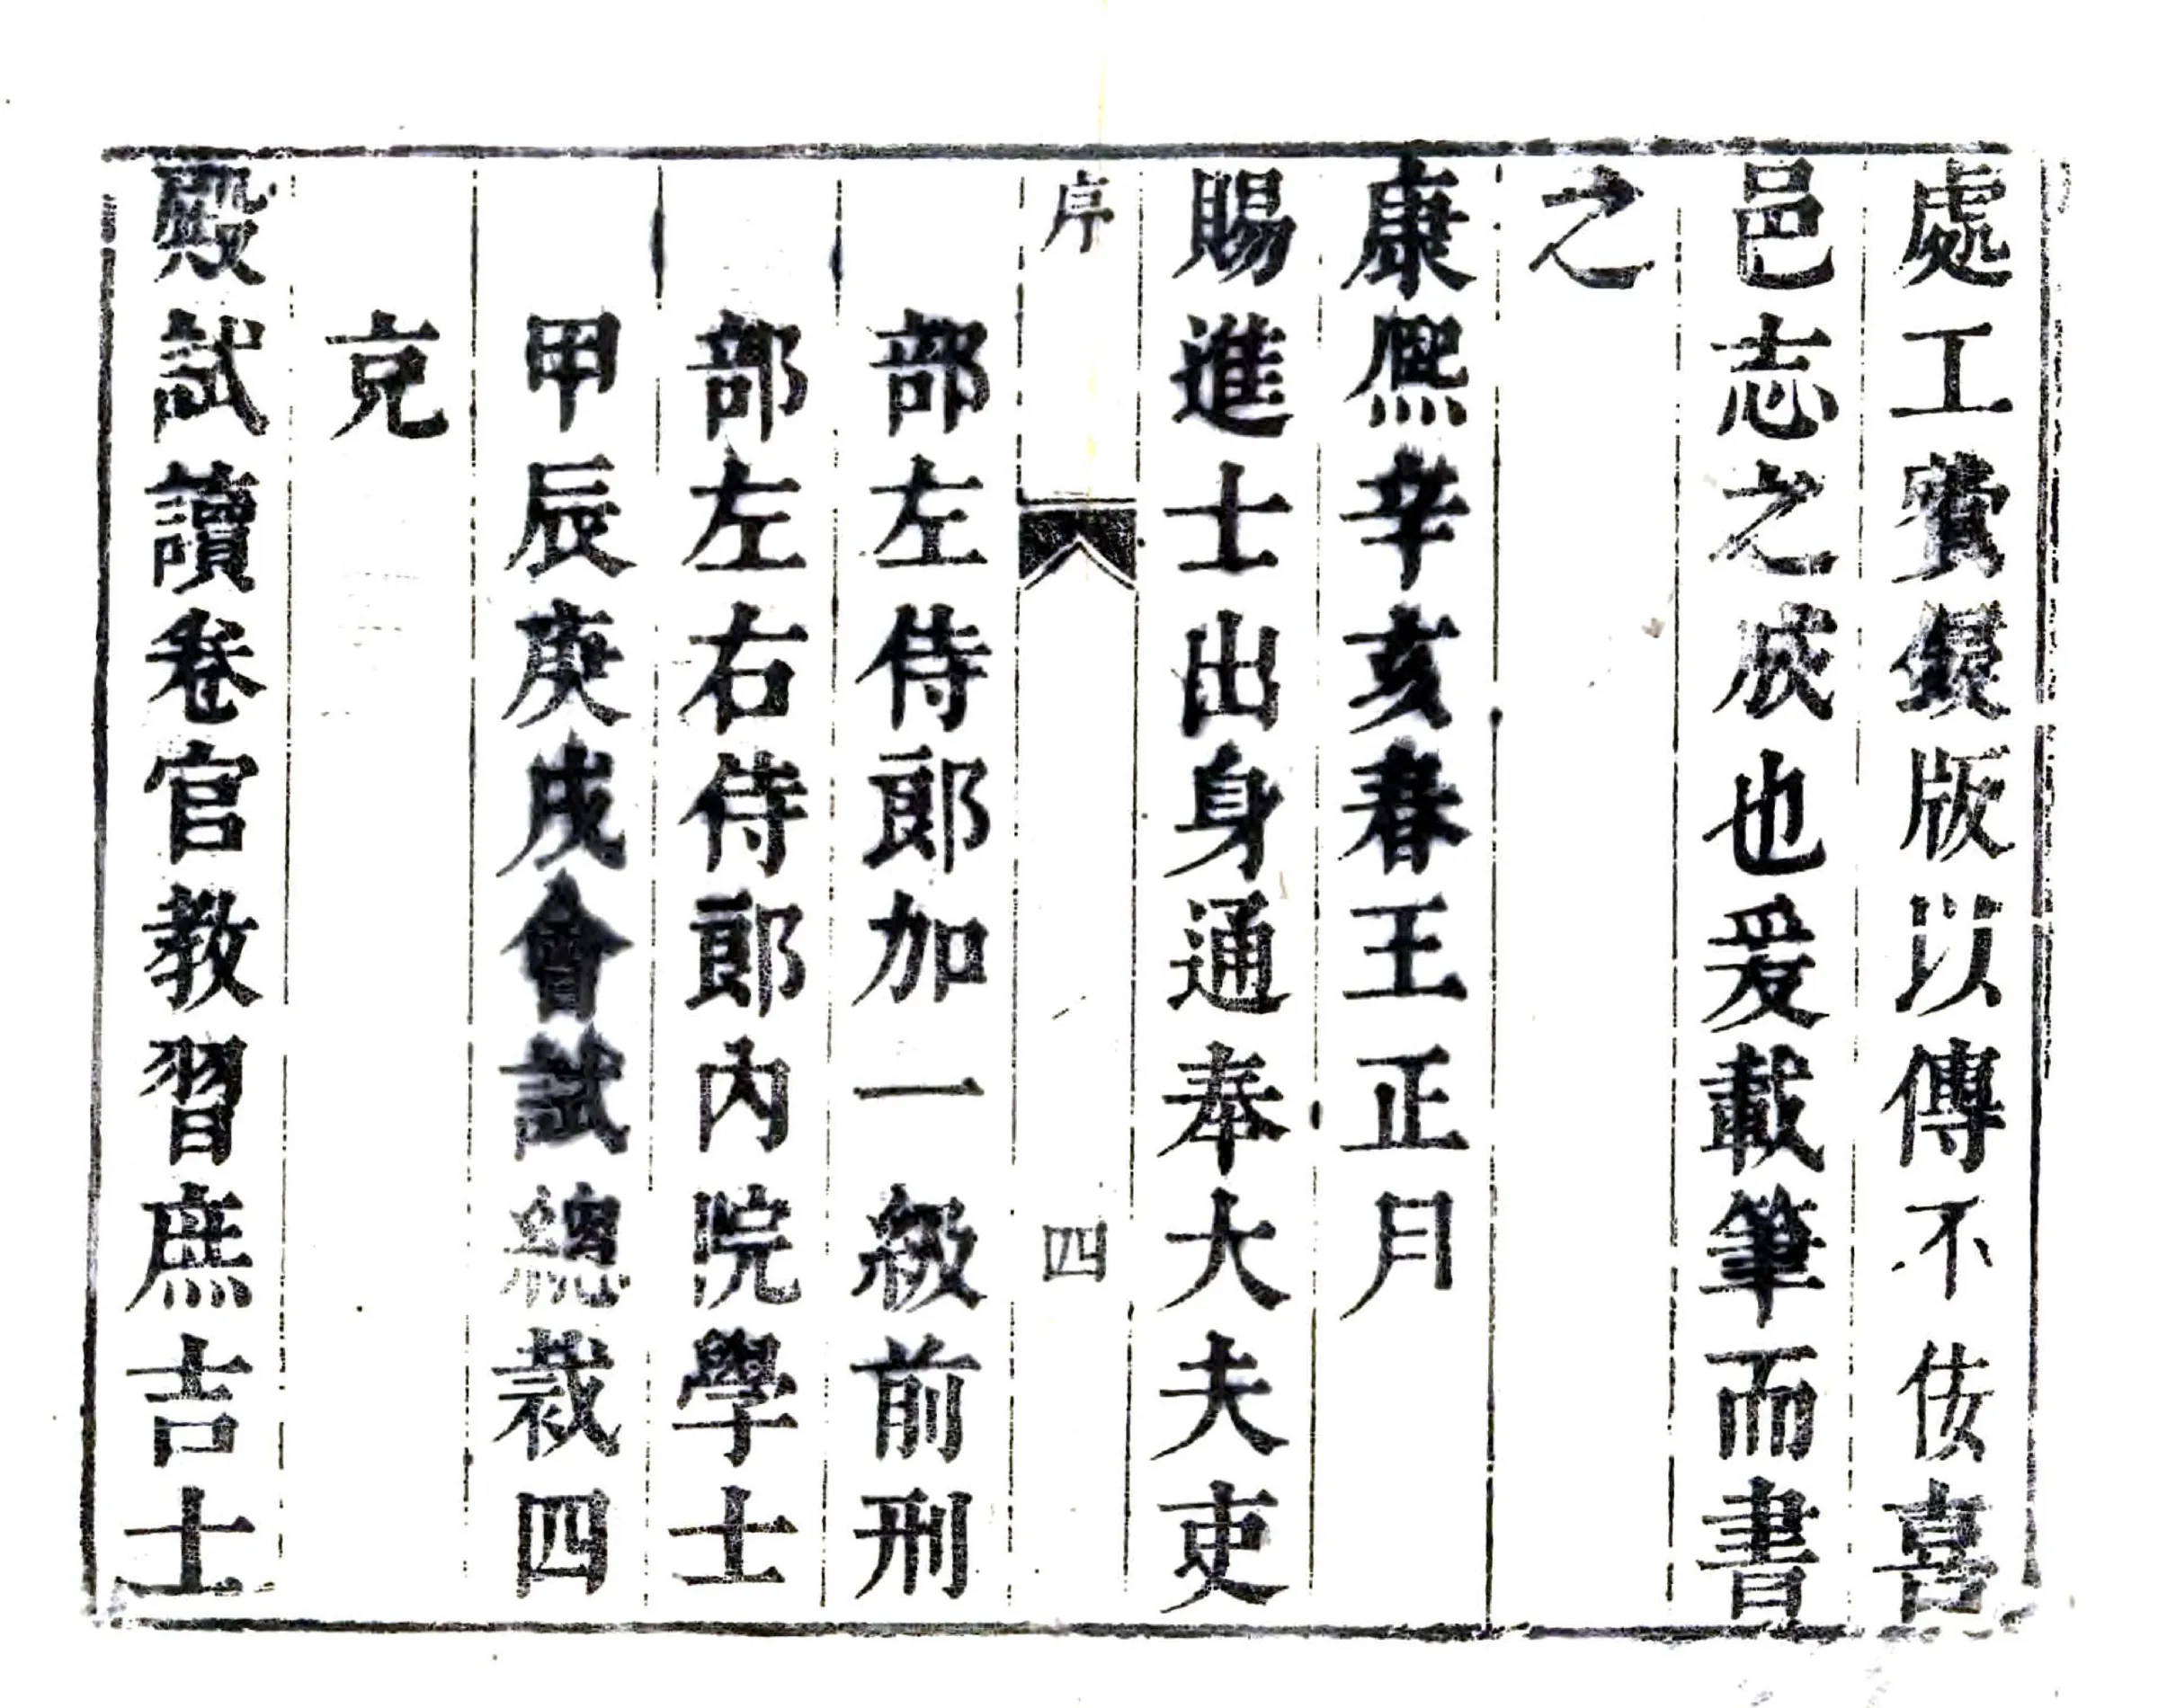 處工費鋟版以傳不佞喜
邑志之成也爰載筆而書
之
康熙辛亥春王正月
賜進士出身通奉大夫吏
序 四
部左侍郎加一級前刑
部左右侍郎內院學士
甲辰庚戌會試總裁四
克
殿試讀卷官教習庶吉士